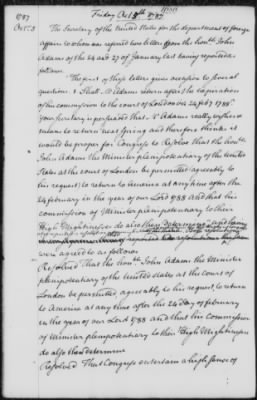 Friday Oct 5th 1787
1787
Oct 5
The Secretary of the United States for the department of foreign
affairs to whom was referred two letters from the honble John
Adams of the 24 and 27 of January last having reported as
follows
The first of these letters gives occasion to several
questions 1 Shall Mr Adams return after the expiration
of the commission to the court of London viz 24 feby 1788.
Your Secretary is persuaded that Mr Adams really wishes &
means to return next spring and therefore thinks it
would be proper for Congress to Resolve that the honble
John Adams the Minister plenipotentiary of the United
States at the court of London be permitted agreeably to
his request to return to America at any time after the
24 february in the year of our Lord 1788 and that his
commission of Minister plenipotentiary to their
High Mightinesses do also then determine
were agreed to as follows
Resolved That the honble John Adams the Minister
plenipotentiary of the United States at the court of
London be permitted agreeably to his request, to return
to America at any time after the 24 day of february
in the year of our Lord 1788 and that his Commission
of Minister plenipotentiary to their High Mightinesses
do also then determine
Resolved That Congress entertain a high sense of